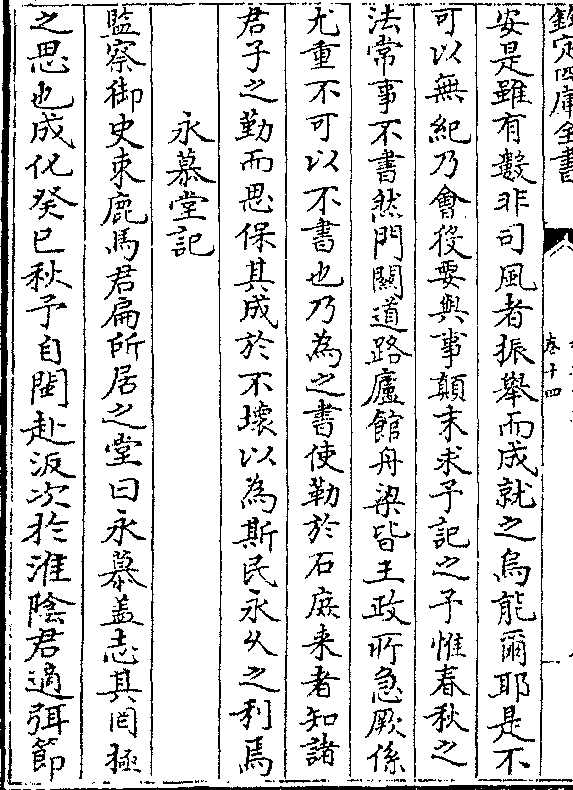 欽定四庫全書
卷十四
安是雖有數非司風者振舉而成就之烏能爾耶是不
可以無紀乃會役要與事顛末求予記之予惟春秋之
法常事不書然門闗道路廬館舟梁皆王政所急厥係
尤重不可以不書也乃為之書使勒於石庶来者知諸
君子之勤而思保其成於不壊以為斯民永乆之利焉
永慕堂記
監察御史束鹿馬君扁所居之堂曰永慕盖志其罔極
之思也成化癸巳秋予自閩赴汳次於淮隂君適弭節